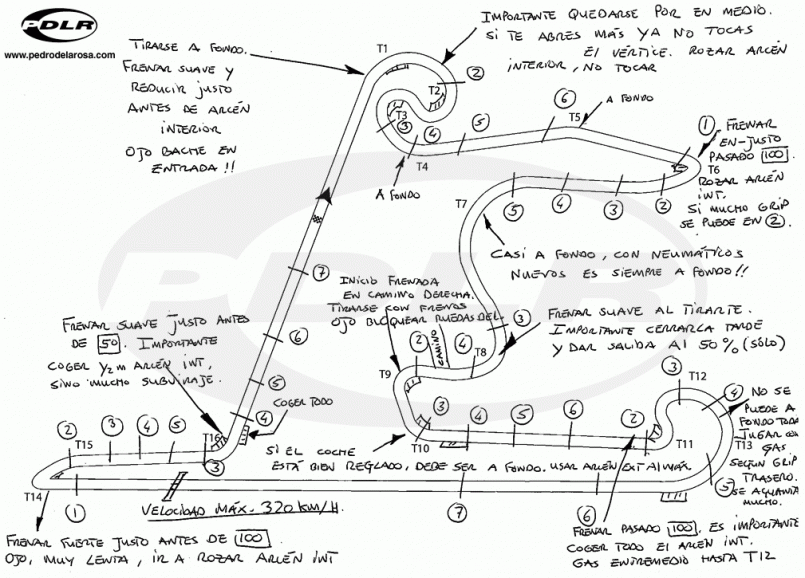 PDLR
www.pedrodelarosa.com
TIRARSE A FONDO.
FRENAR SUAVE Y
REDUCIR JUSTO
ANTES DE ARCÉN
INTERIOR
OJO BACHE EN
ENTRADA !!
IMPORTANTE QUEDARSE POR EN MEDIO.
SI TE ABRES MÁS YA NO TOCAS
EL VÉRTICE. ROZAR ARCÉN
INTERIOR, NO TOCAR
T1
2
T2
T3
3
4
T4
5
6
T5
A FONDO
A FONDO
1
FRENAR
EN-JUSTO
PASADO 100.
T6
ROZAR ARCÉN
INT.
SI MUCHO GRIP
SE PUEDE EN 2.
T7
5
4
3
2
CASI A FONDO, CON NEUMÁTICOS
NUEVOS ES SIEMPRE A FONDO!!
7
6
5
4
INICIO FRENADA
EN CAMINO DERECHA.
TIRARSE CON FRENOS
OJO BLOQUEAR RUEDAS DEL.
3
2
CAMINO
4
T8
T9
FRENAR SUAVE AL TIRARTE.
IMPORTANTE CERRARLA TARDE
Y DAR SALIDA AL 50% (SÓLO)
FRENAR SUAVE JUSTO ANTES
DE 50. IMPORTANTE
COGER 1/2 m ARCÉN INT,
SINO MUCHO SUBVIRAJE.
COGER TODO
3
T10
4
5
6
2
3
T12
4
T11
T13
5
NO SE
PUEDE A
FONDO TODA
JUGAR CON
GAS
SEGÚN GRIP
TRASERO.
SE AGUANTA
MUCHO.
2
T15
3
4
5
T16
3
SI EL COCHE
ESTÁ BIEN REGLADO, DEBE SER A FONDO. USAR ARCÉN EXT AL MÁX
T14
1
VELOCIDAD MÁX. 320 KM/H.
7
6
FRENAR FUERTE JUSTO ANTES DE 100.
OJO, MUY LENTA, IR A ROZAR ARCÉN INT
FRENAR PASADO 100, ES IMPORTANTE
COGER TODO EL ARCÉN INT.
GAS ENTREMEDIO HASTA T12